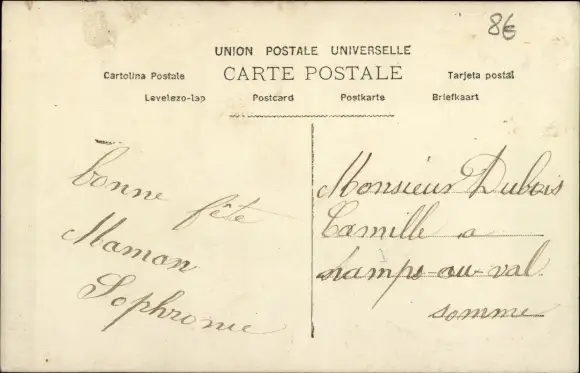 86
UNION POSTALE UNIVERSELLE
Cartolina Postale CARTE POSTALE Tarjeta postal
Levelezo-lap Postcard Postkarte Briefkaart
bonne
fête
Maman
Sophronie
Monsieur Dubois
Camille a
namps-au-val
somme